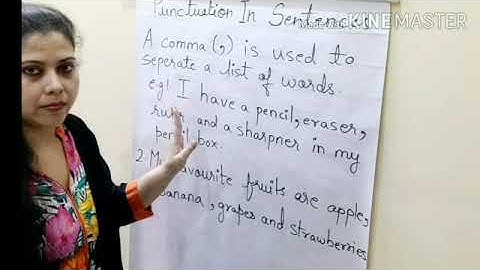 Punctustion In Sentences
KINEMASTER
A comma (,) is used to
seperate a list of words.
eg! I have a pencil, eraser,
and a sharpner in my
box.
2. favourite fruits are apple,
banana, grapes and strawberries